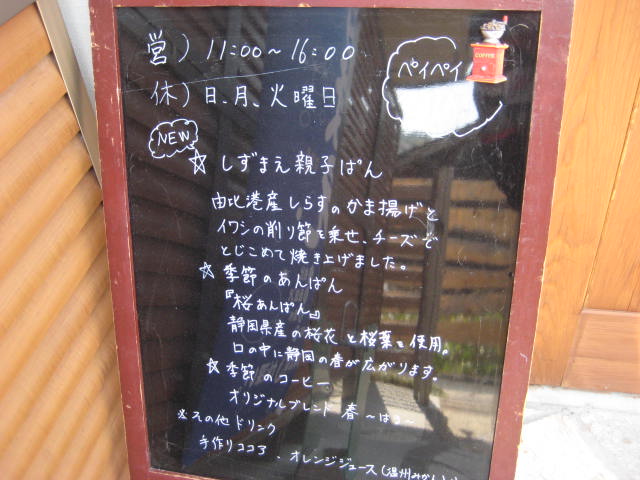 営) 11:00～16:00
ペイペイ
COFFEE
休) 日、月、火曜日
NEW
☆ しずまえ親子ぱん
由比港産しらすのかま揚げと
イワシの削り節を乗せ、チーズで
とじこめて焼き上げました。
☆ 季節のあんぱん
『桜あんぱん』
静岡県産の桜花と桜葉を使用。
口の中に静岡の春が広がります。
☆ 季節のコーヒー
オリジナルブレンド 春 ～はる～
※その他ドリンク
手作りココア、オレンジジュース(温州みかん)